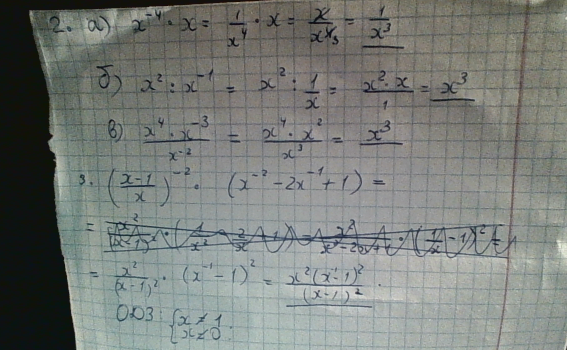 2. а) x⁻⁴ · x = 1/x⁴ · x = x/x⁴³ = 1/x³
б) x² : x⁻¹ = x² : 1/x = x² · x/1 = x³
в) x⁴ · x⁻³/x⁻² = x⁴ · x²/x³ = x³
3. ((x-1)/x)⁻² · (x⁻² - 2x⁻¹ + 1) =
= x²/(x-1)² · (x⁻¹ - 1)² = x²(x⁻¹ - 1)²/(x-1)².
ОДЗ: { x ≠ 1
x ≠ 0.